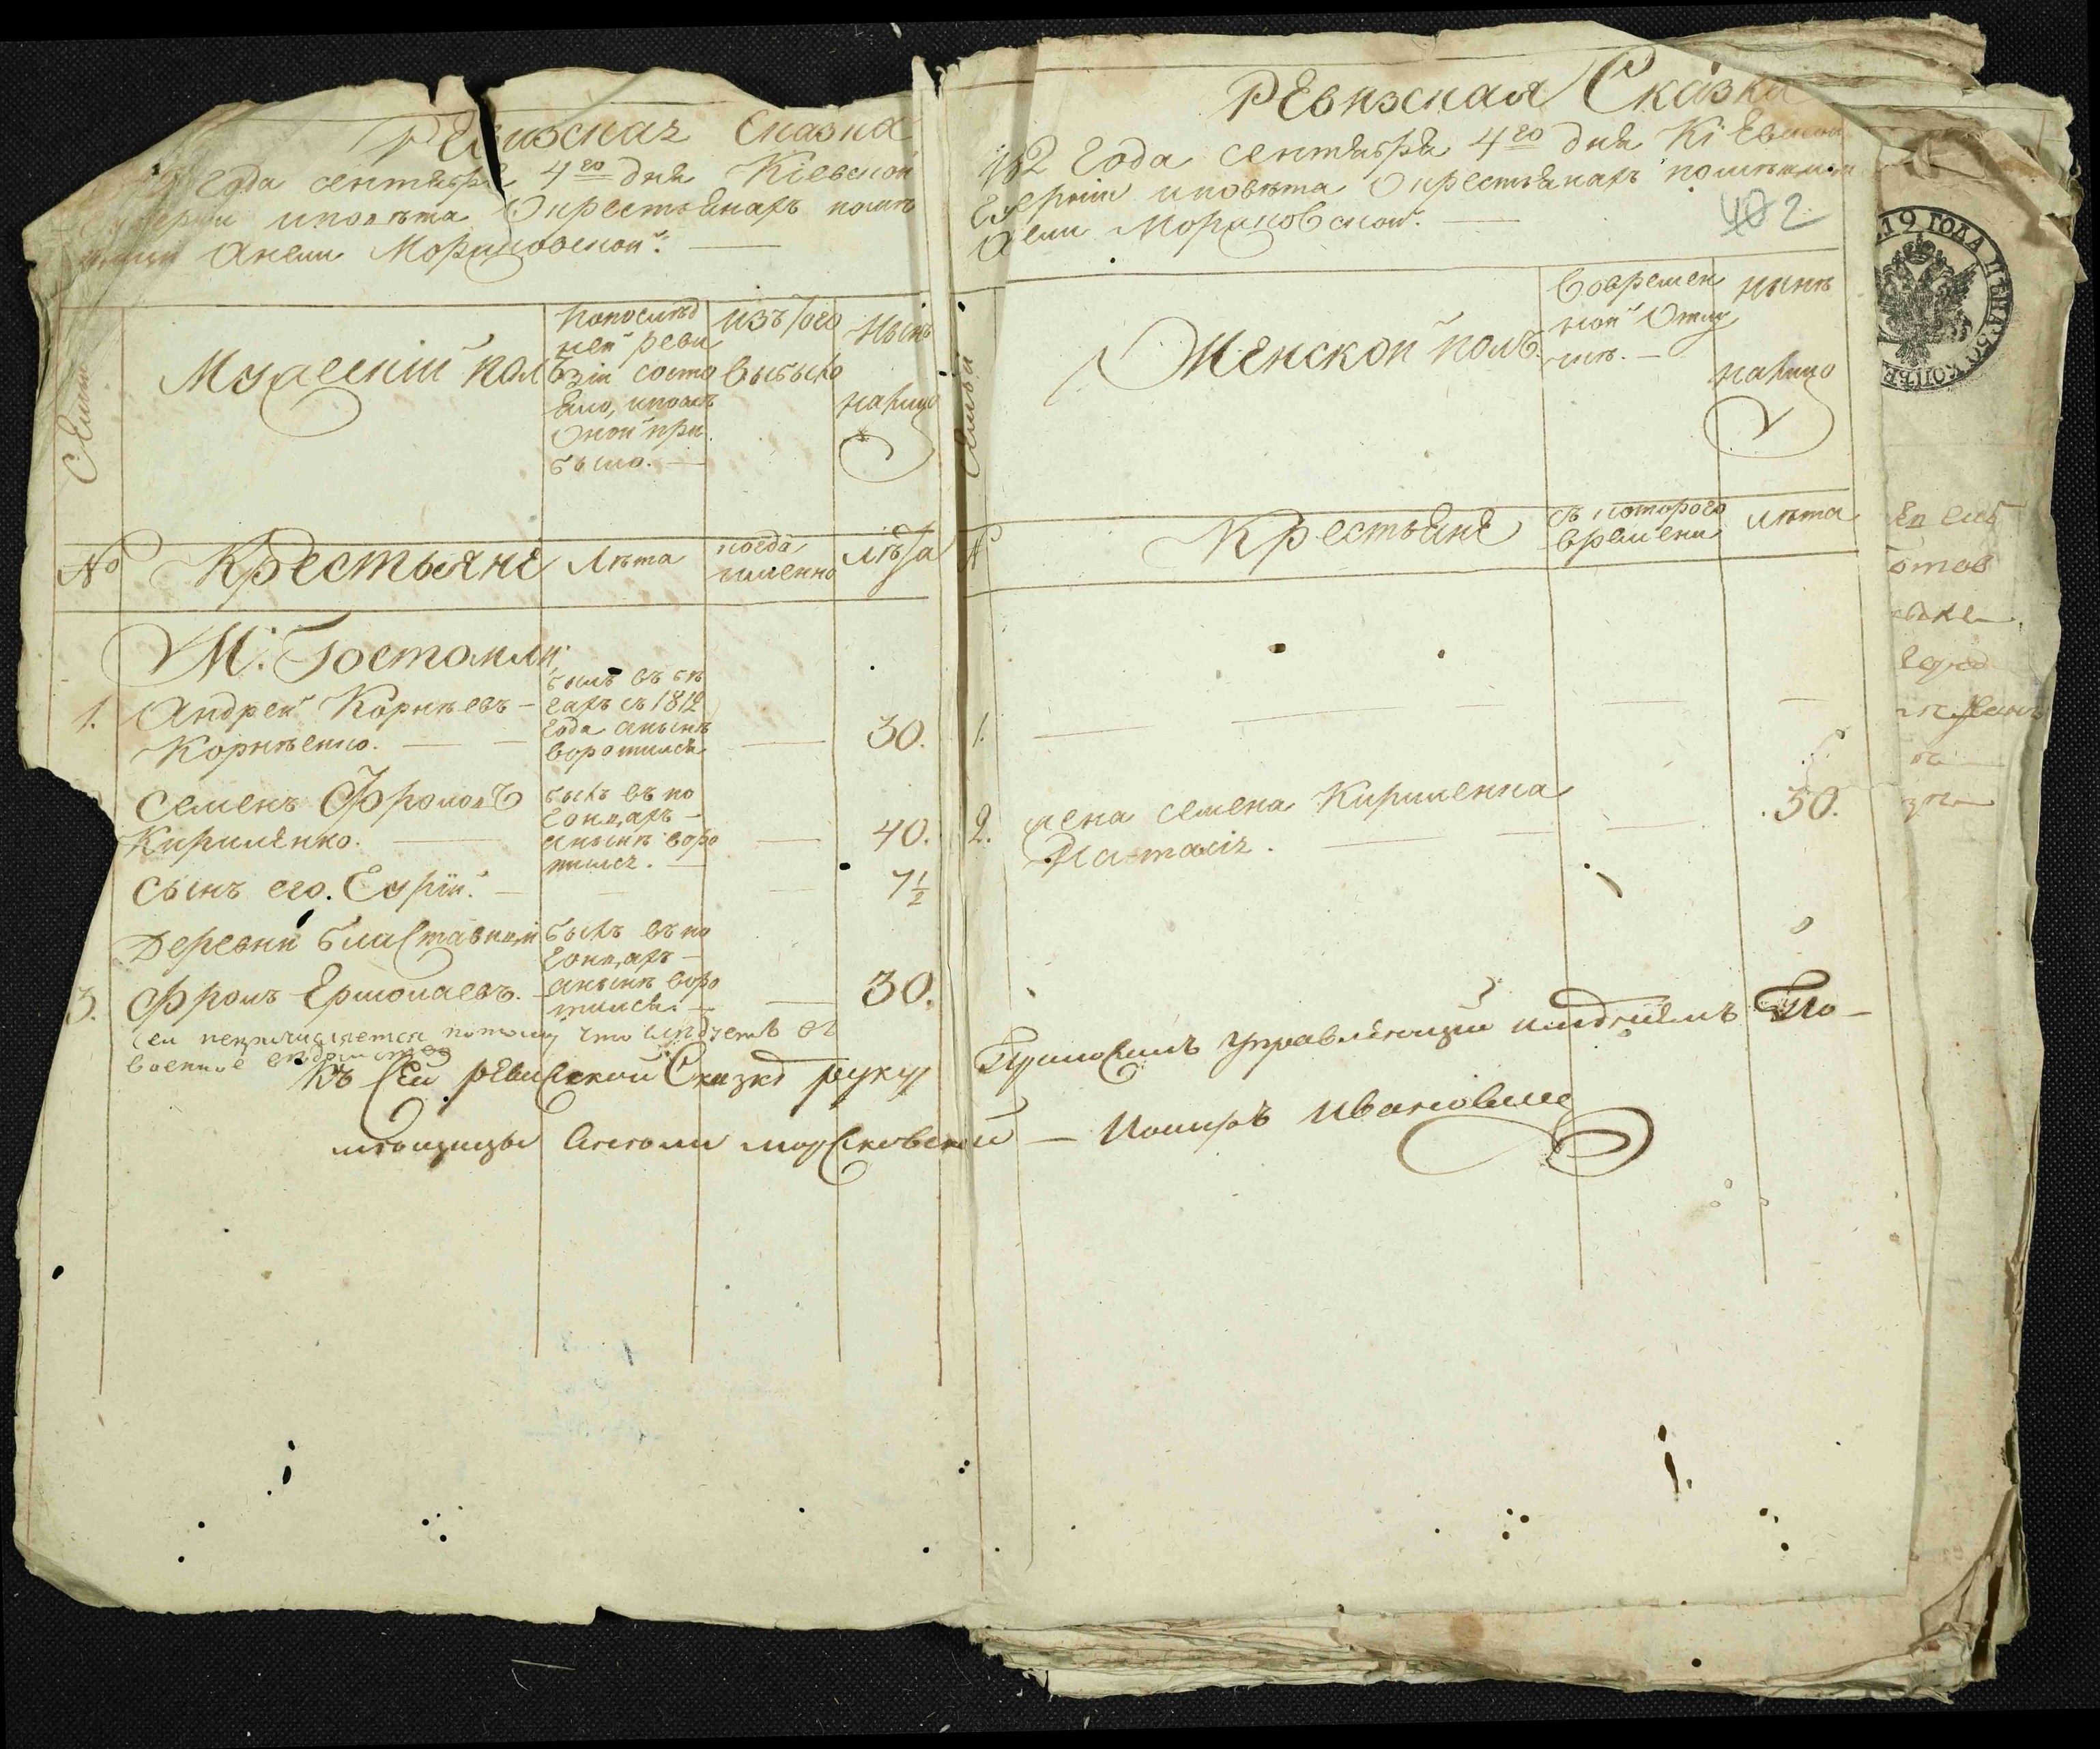 Ревизская Сказка
года сентября 4го дня Кіевской
Губерніи иповѣта Окрестьянахъ помѣ
щици Анели Моршковской:
Семьи
Мужескій полъ
Попослѣд
ней реви
зіи состо
яло, ипослѣ
Оной при
было.
изътого
Выбыло
Нынѣ
налицо
№
Крестьяне
Лѣта
когда
имменно
лѣта
М: Гостомли:
1. Андрей Корнѣевъ
Корнѣенко.
былъ въ бѣ
гахъ съ 1812
года анынѣ
воротился
30.
Семенъ Фроловъ
Кириленко.
былъ въ по
гонцахъ
анынѣ воро
тился.
40.
Сынъ его. Еврій.
7½
Деревни Бластавици
3. Фролъ Ермолаевъ.
былъ въ по
гонцахъ
анынѣ воро
тился.
30.
сей непричисляется потому что
военное
Къ Сей ревизской Сказкѣ руку
Ревизская Сказка
182 Года сентября 4го дня Кіевской
Губерніи иповѣта Окрестьянахъ помѣщици
Анели Моршковской.
402
19 ГОДА
Семьи
Женской полъ.
Вовремен
ной Отлу
чкѣ.
нынѣ
налицо
№
Крестьяне
съ котораго
времени
лѣта
1.
2. жена семена Кириленка
Наталія.
30.
Приложилъ Управляющій имѣніемъ По-
мѣщицы Анели Моршковской — Иванович